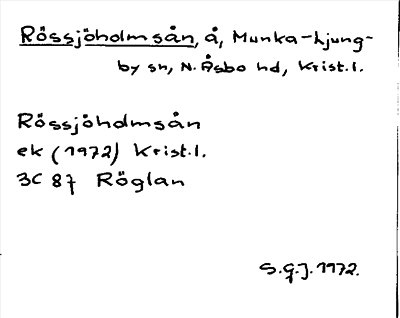 Rössjöholmsån, å, Munka-Ljung-
by sn, N. Åsbo hd, Krist. l.
Rössjöholmsån
ek (1972) Krist. l.
3C 87 Röglan
S.G.J. 1972.